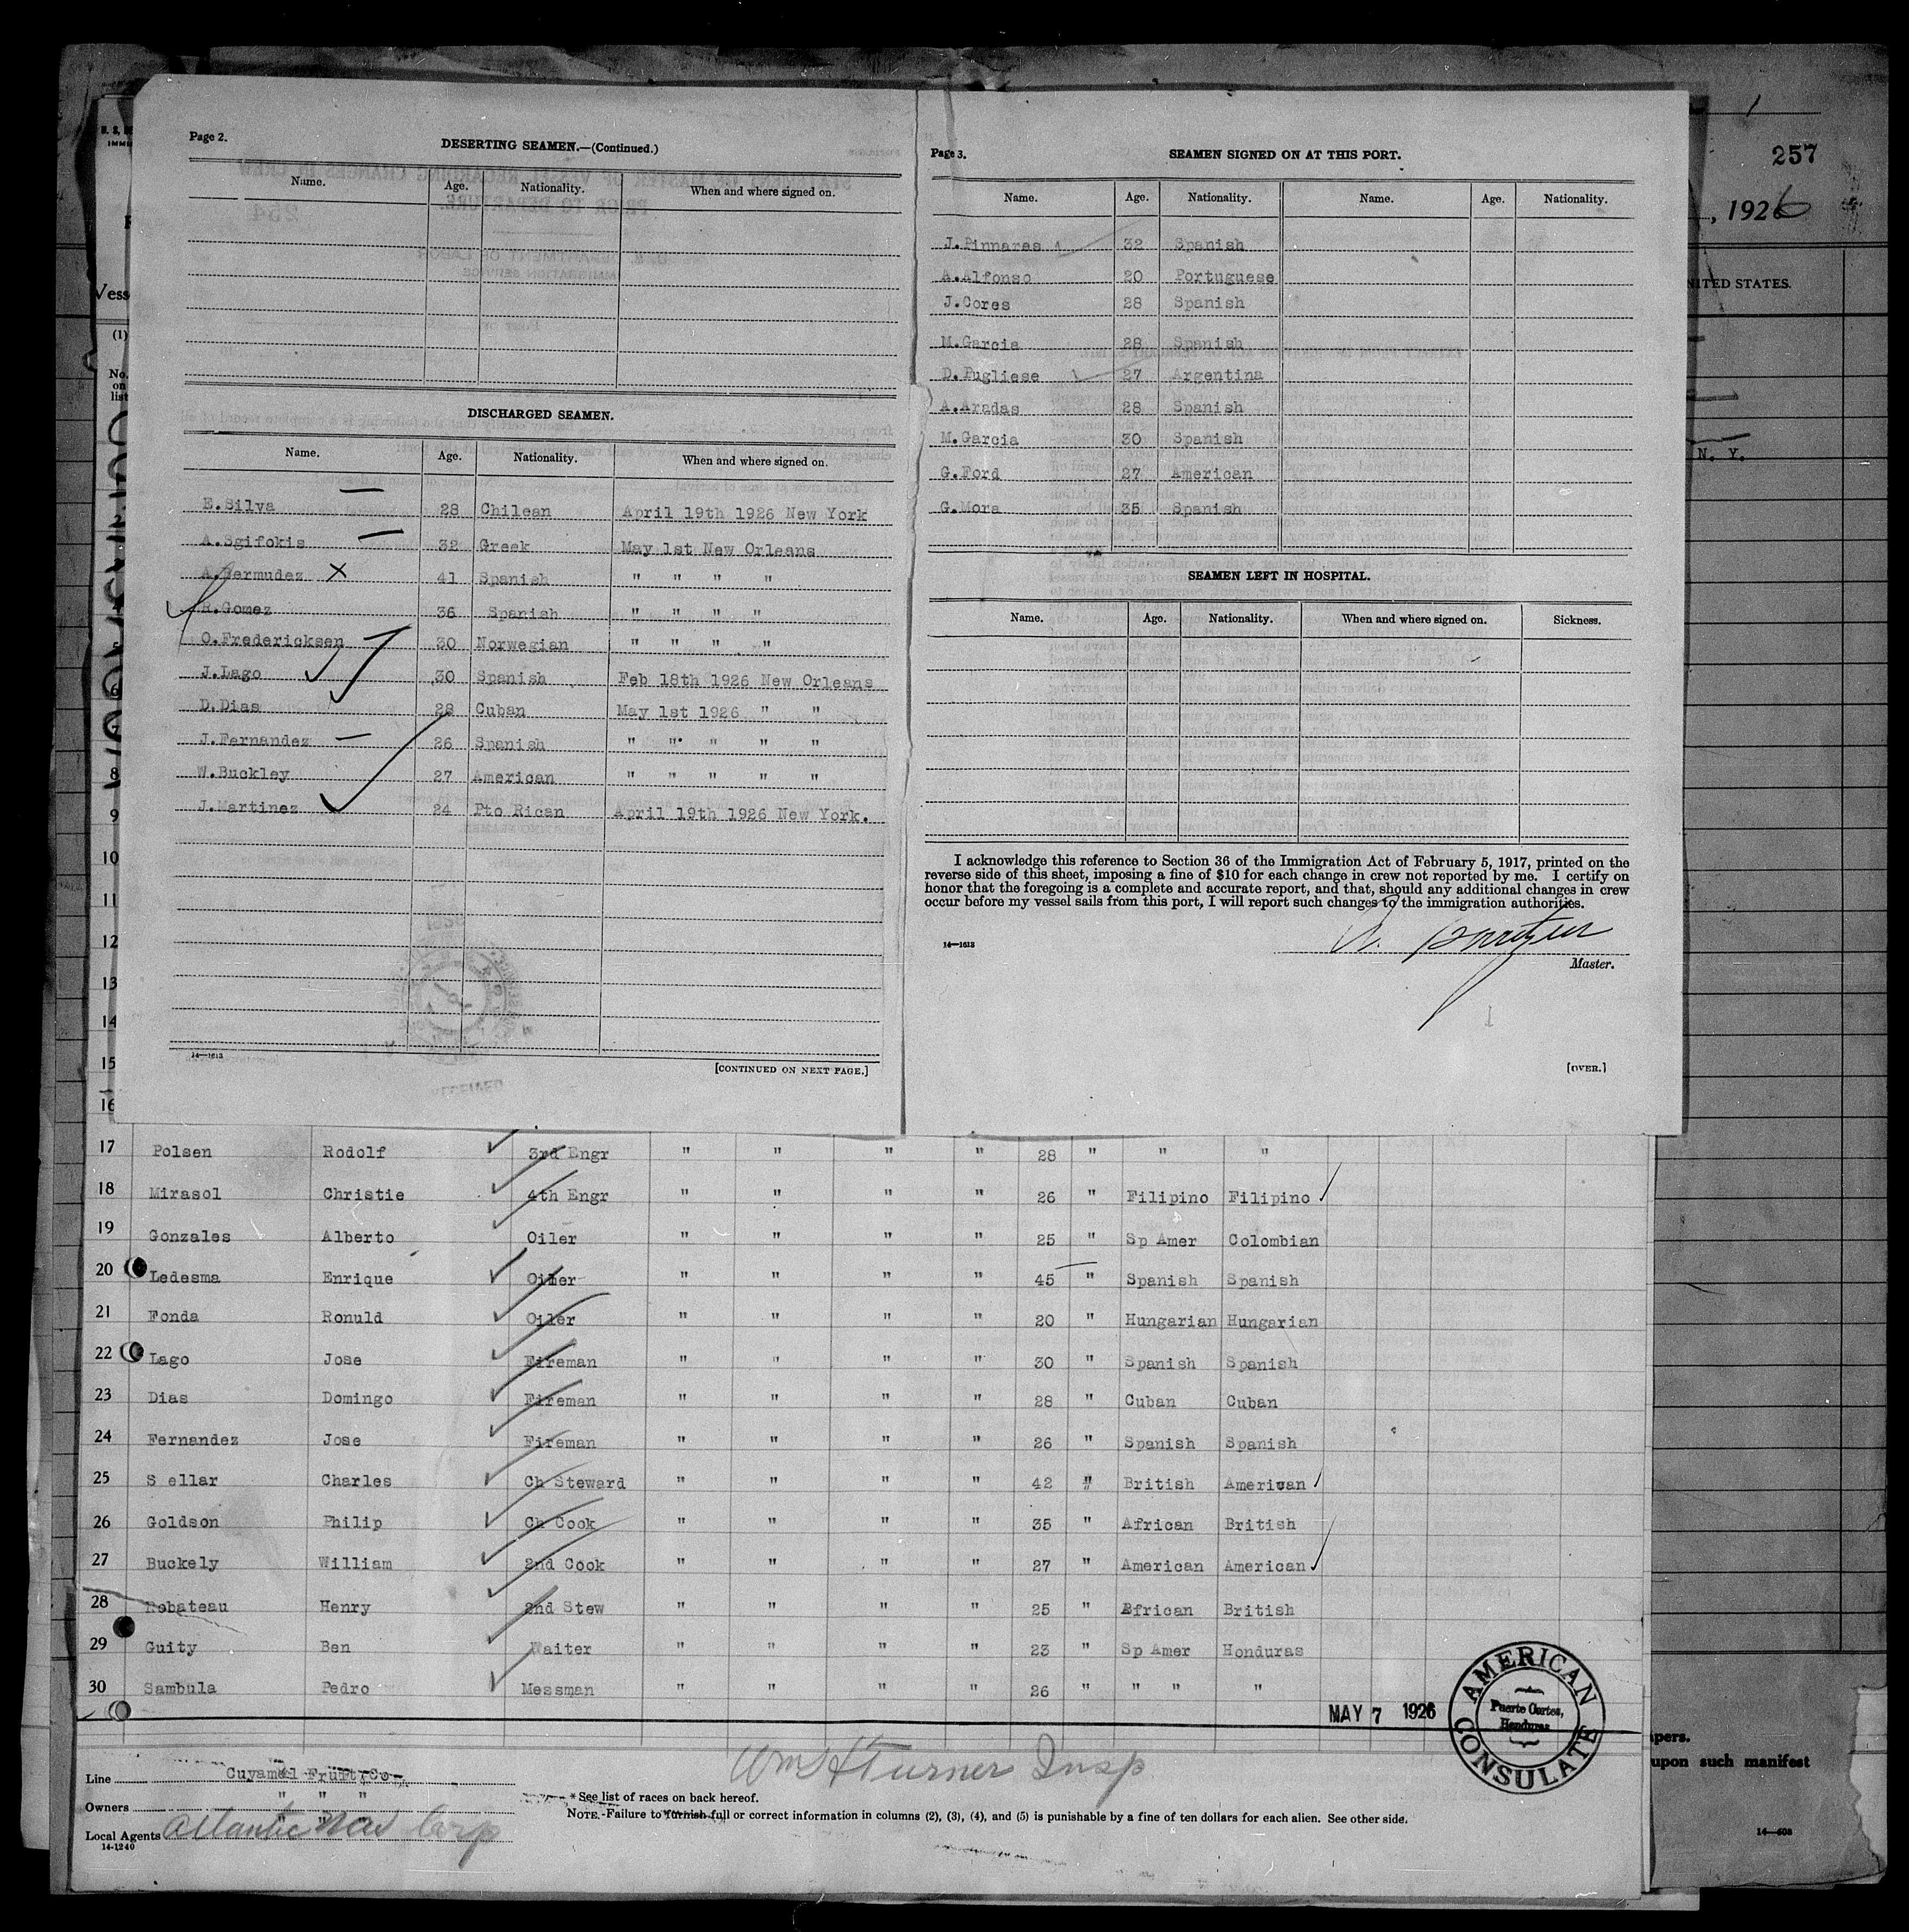 Page 2.
DESERTING SEAMEN.—(Continued.)
Name. Age. Nationality. When and where signed on.
DISCHARGED SEAMEN.
Name. Age. Nationality. When and where signed on.
E.Silva 28 Chilean April 19th 1926 New York
A.Sgifokis 32 Greek May 1st New Orleans
A.Bermudez X 41 Spanish " " " "
R.Gomez 36 Spanish " " " "
O.Fredericksen 30 Norwegian " " " "
J.Lago 30 Spanish Feb 18th 1926 New Orleans
D.Dias 28 Cuban May 1st 1926 " "
J.Fernandez 26 Spanish " " " " "
W.Buckley 27 American " " " " "
J.Martinez 24 Pto Rican April 19th 1926 New York.
14—1613
[CONTINUED ON NEXT PAGE.]
Page 3.
SEAMEN SIGNED ON AT THIS PORT.
Name. Age. Nationality. Name. Age. Nationality.
J.Pinnares 32 Spanish
A.Alfonso 20 Portuguese
J.Cores 28 Spanish
M.Garcia 28 Spanish
D.Pugliese 27 Argentina
A.Aradas 28 Spanish
M.Garcia 30 Spanish
G.Ford 27 American
G.Mora 35 Spanish
SEAMEN LEFT IN HOSPITAL.
Name. Age. Nationality. When and where signed on. Sickness.
I acknowledge this reference to Section 36 of the Immigration Act of February 5, 1917, printed on the
reverse side of this sheet, imposing a fine of $10 for each change in crew not reported by me. I certify on
honor that the foregoing is a complete and accurate report, and that, should any additional changes in crew
occur before my vessel sails from this port, I will report such changes to the immigration authorities.
14—1613
Master.
[OVER.]
257
, 1926
NITED STATES.
N. Y.
Vess
(1)
No.
on
list
5
6
7
8
9
10
11
12
13
14
15
16
17 Polsen Rodolf 3rd Engr " " " " 28 " " "
18 Mirasol Christie 4th Engr " " " " 26 " Filipino Filipino
19 Gonzales Alberto Oiler " " " " 25 " Sp Amer Colombian
20 Ledesma Enrique Oiler " " " " 45 " Spanish Spanish
21 Fonda Ronuld Oiler " " " " 20 " Hungarian Hungarian
22 Lago Jose Fireman " " " " 30 " Spanish Spanish
23 Dias Domingo Fireman " " " " 28 " Cuban Cuban
24 Fernandez Jose Fireman " " " " 26 " Spanish Spanish
25 S ellar Charles Ch Steward " " " " 42 " British American
26 Goldson Philip Ch Cook " " " " 35 " African British
27 Buckely William 2nd Cook " " " " 27 " American American
28 Robateau Henry 2nd Stew " " " " 25 " African British
29 Guity Ben Waiter " " " " 23 " Sp Amer Honduras
30 Sambula Pedro Messman " " " " 26 " " " "
MAY 7 1926
AMERICAN CONSULATE
Puerto Cortes,
Honduras
Wm H Turner Insp
Line Cuyamel Fruit Co
Owners " " "
Local Agents Atlantic Nav Corp
14-1240
* See list of races on back hereof.
NOTE.-Failure to furnish full or correct information in columns (2), (3), (4), and (5) is punishable by a fine of ten dollars for each alien. See other side.
pers.
upon such manifest
14—608